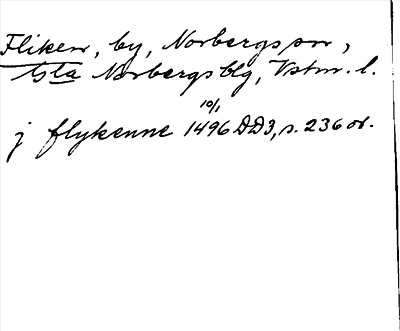 Fliken, by, Norbergs sn,
Gla Norbergs blg, Vstm. l.
10/1
j flykenne 1496 DD3, s. 236 or.